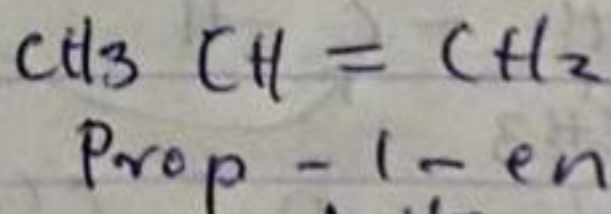 CH3 CH = CH2
Prop - 1 - en